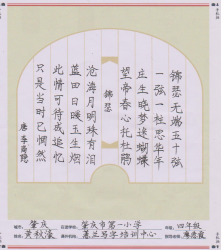 锦瑟
锦瑟无端五十弦
一弦一柱思华年
庄生晓梦迷蝴蝶
望帝春心托杜鹃
沧海月明珠有泪
蓝田日暖玉生烟
此情可待成追忆
只是当时已惘然
唐李商隐
肇庆
肇庆市第一小学
四年级
写字培训中心